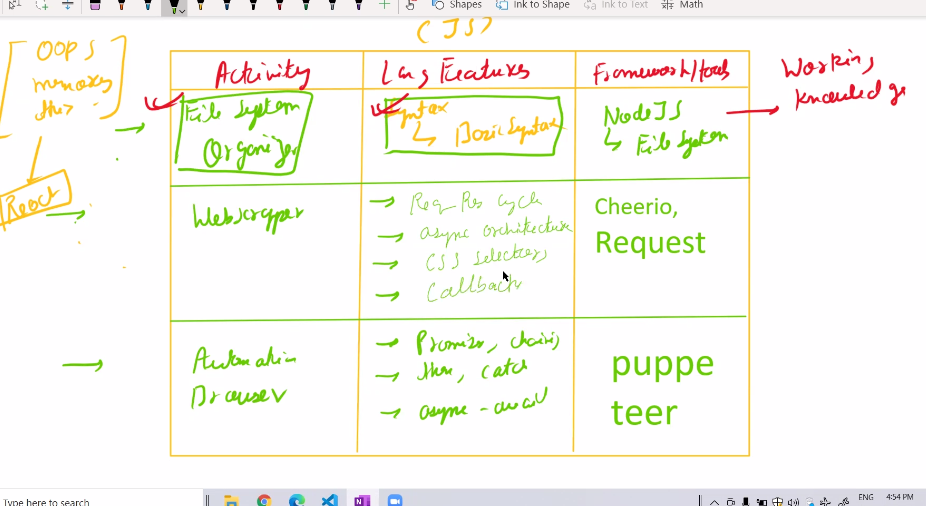 Shapes
Ink to Shape
Ink to Text
Math
(JS)
OOPS
memory
this
React
Activity
Lang Features
Framework/tools
Working
File System
Organizer
Syntax
Basic Syntax
NodeJS
File System
Webscrapper
Req Res Cycle
async architecture
CSS selectors
Callback
Cheerio,
Request
Automation
Browser
Promise, chaining
then, catch
async-await
puppe
teer
Type here to search
ENG
4:54 PM